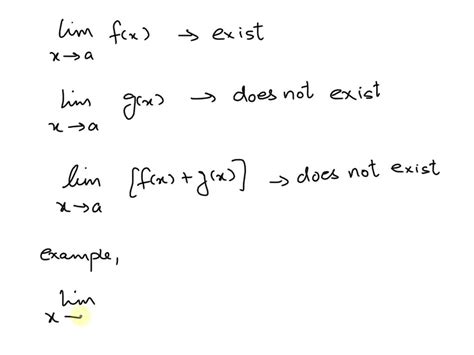 lim f(x) → exist
x→a
lim g(x) → does not exist
x→a
lim [f(x) + g(x)] → does not exist
x→a
example,
lim
x −